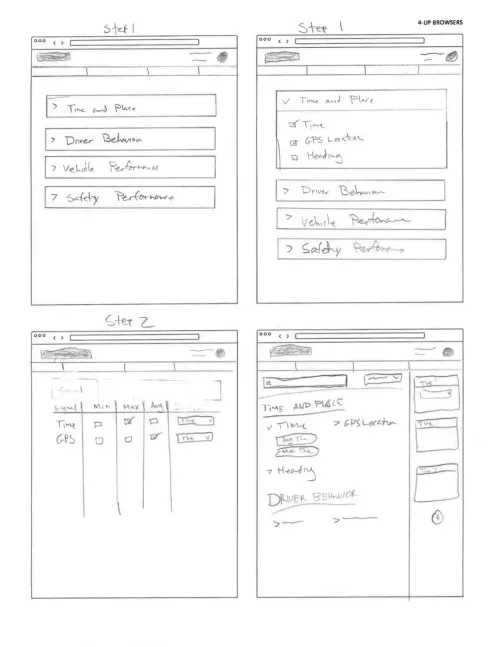 4-UP BROWSERS
Step 1
> Time and Place
> Driver Behavior
> Vehicle Performance
> Safety Performance
Step 1
v Time and Place
Time
GPS Location
Heading
> Driver Behavior
> Vehicle Performance
> Safety Performance
Step 2
Signal
Signal Min Max Avg
Time
GPS
TIME AND PLACE
v TIME > GPS Location
> Heading
DRIVER BEHAVIOR